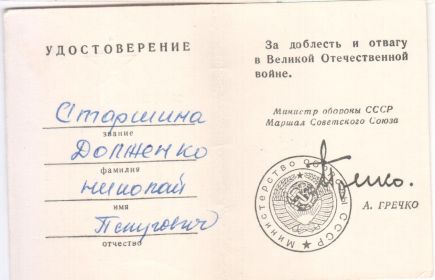 УДОСТОВЕРЕНИЕ
Старшина
звание
Долженко
фамилия
Николай
имя
отчество
За доблесть и отвагу
в Великой Отечественной
войне.
Министр обороны СССР
Маршал Советского Союза
А. ГРЕЧКО
Министерство Обороны СССР